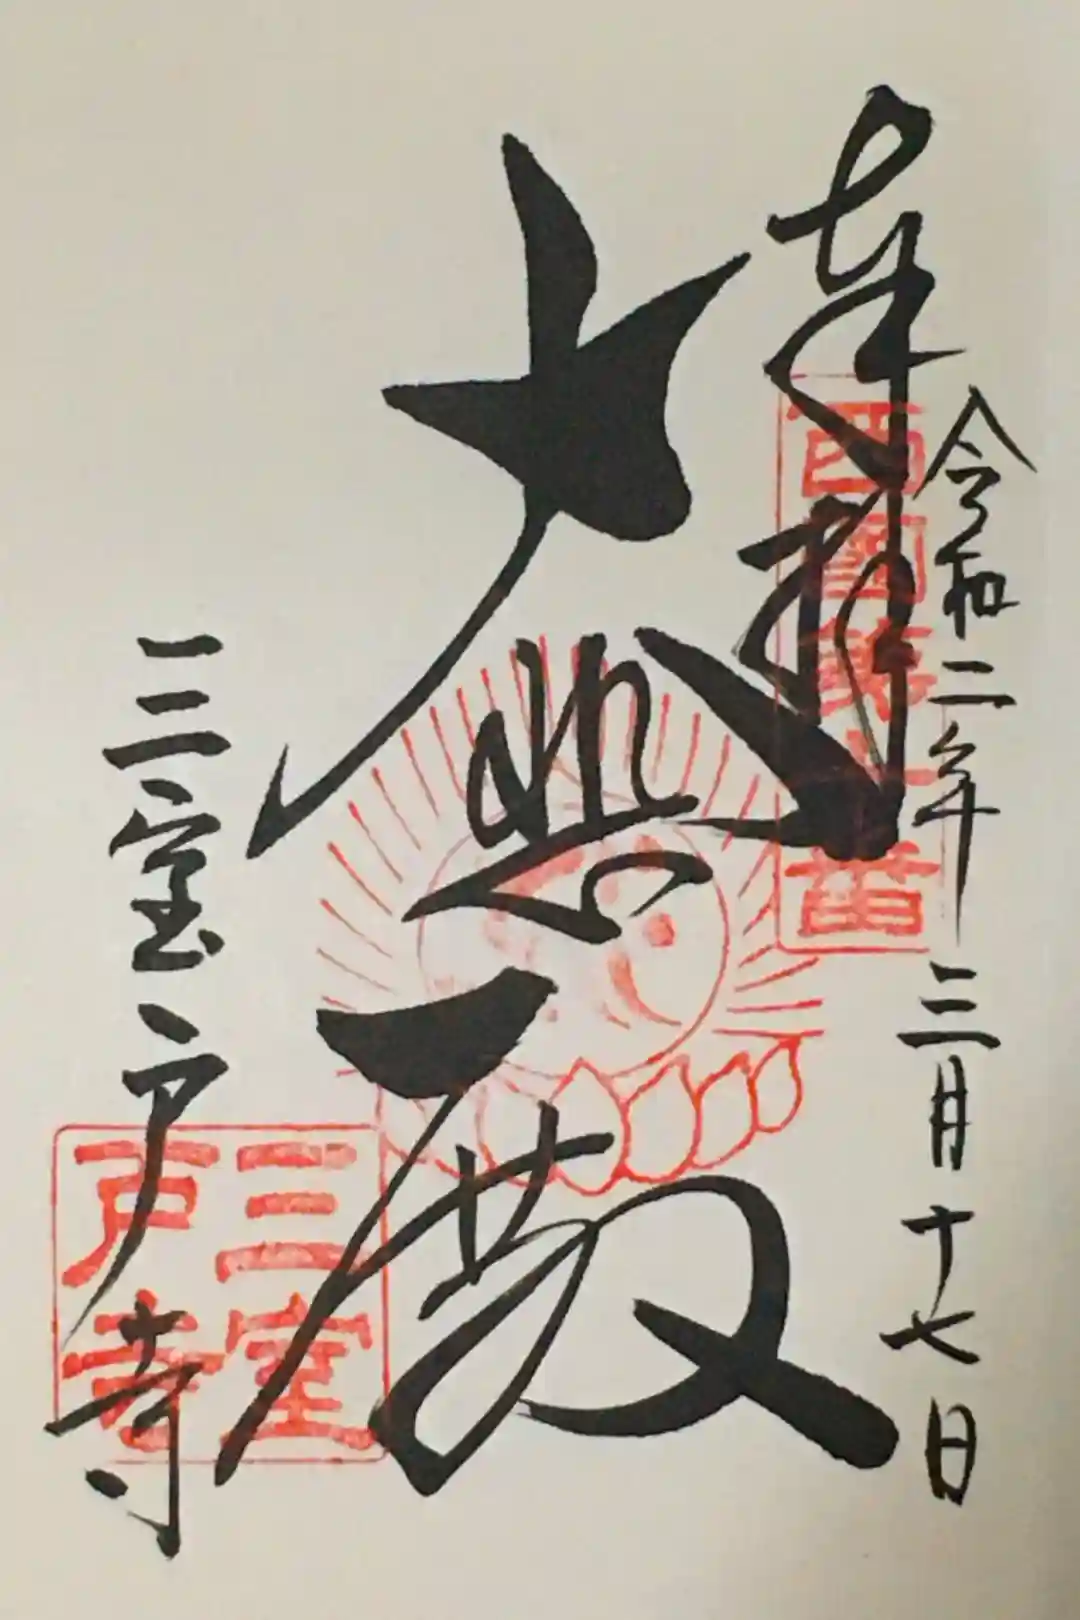 奉拝
令和二年三月十七日
西国第十番
大悲殿
三室戸寺
三室戸寺